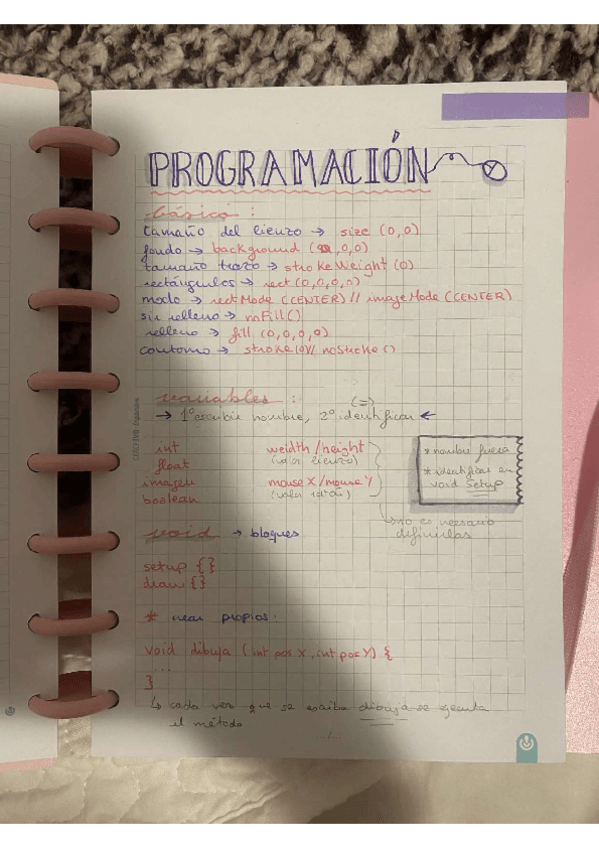 PROGRAMACIÓN
básico :
tamaño del lienzo → size (0,0)
fondo → background (0,0,0)
tamaño trazo → strokeWeight (0)
rectángulos → rect (0,0,0,0)
modo → rectMode (CENTER) // imageMode (CENTER)
sin relleno → noFill ()
relleno → fill (0,0,0,0)
contorno → stroke (0) // noStroke ()
variables :
(=)
→ 1º escribir nombre, 2º identificar ←
int weidth / height
float (valor lienzo)
imagen mouse X / mouse Y
boolean (valor ratón)
* nombre fuera
* identificar en
void setup
↳ no es necesario
definirlas
void → bloques
setup { }
draw { }
* crear propios:
void dibuja (int pos X, int pos Y) {
...
}
↳ cada vez que se escriba dibuja se ejecuta
el método